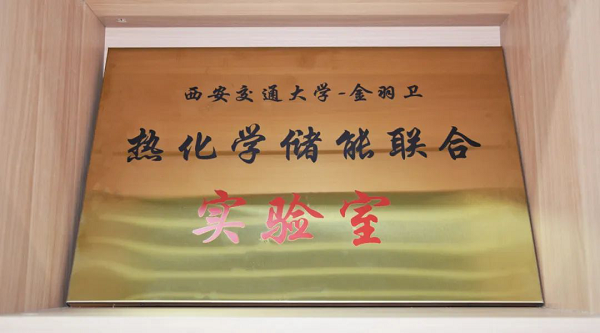 西安交通大学-金羽卫
热化学储能联合
实验室